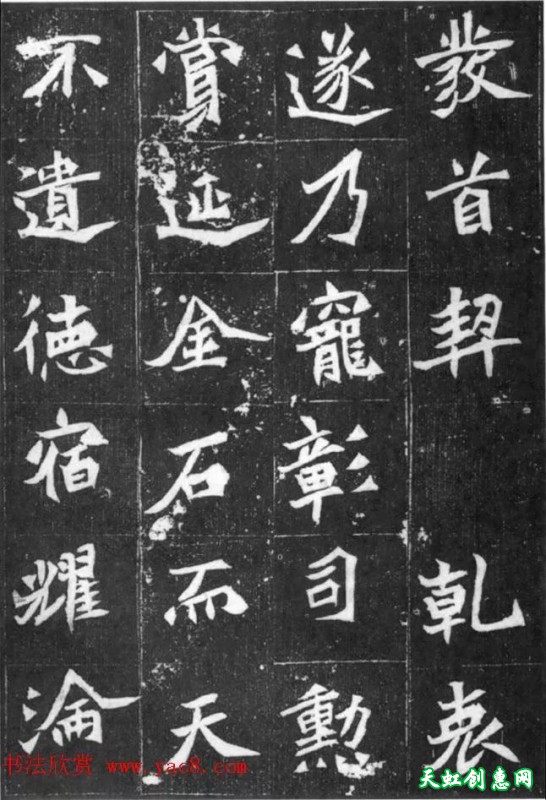 發首契 乾衷
遂乃寵彰司勳
賞延金石而天
不遺德宿耀淪
书法欣赏 www.yac8.com
天虹创惠网